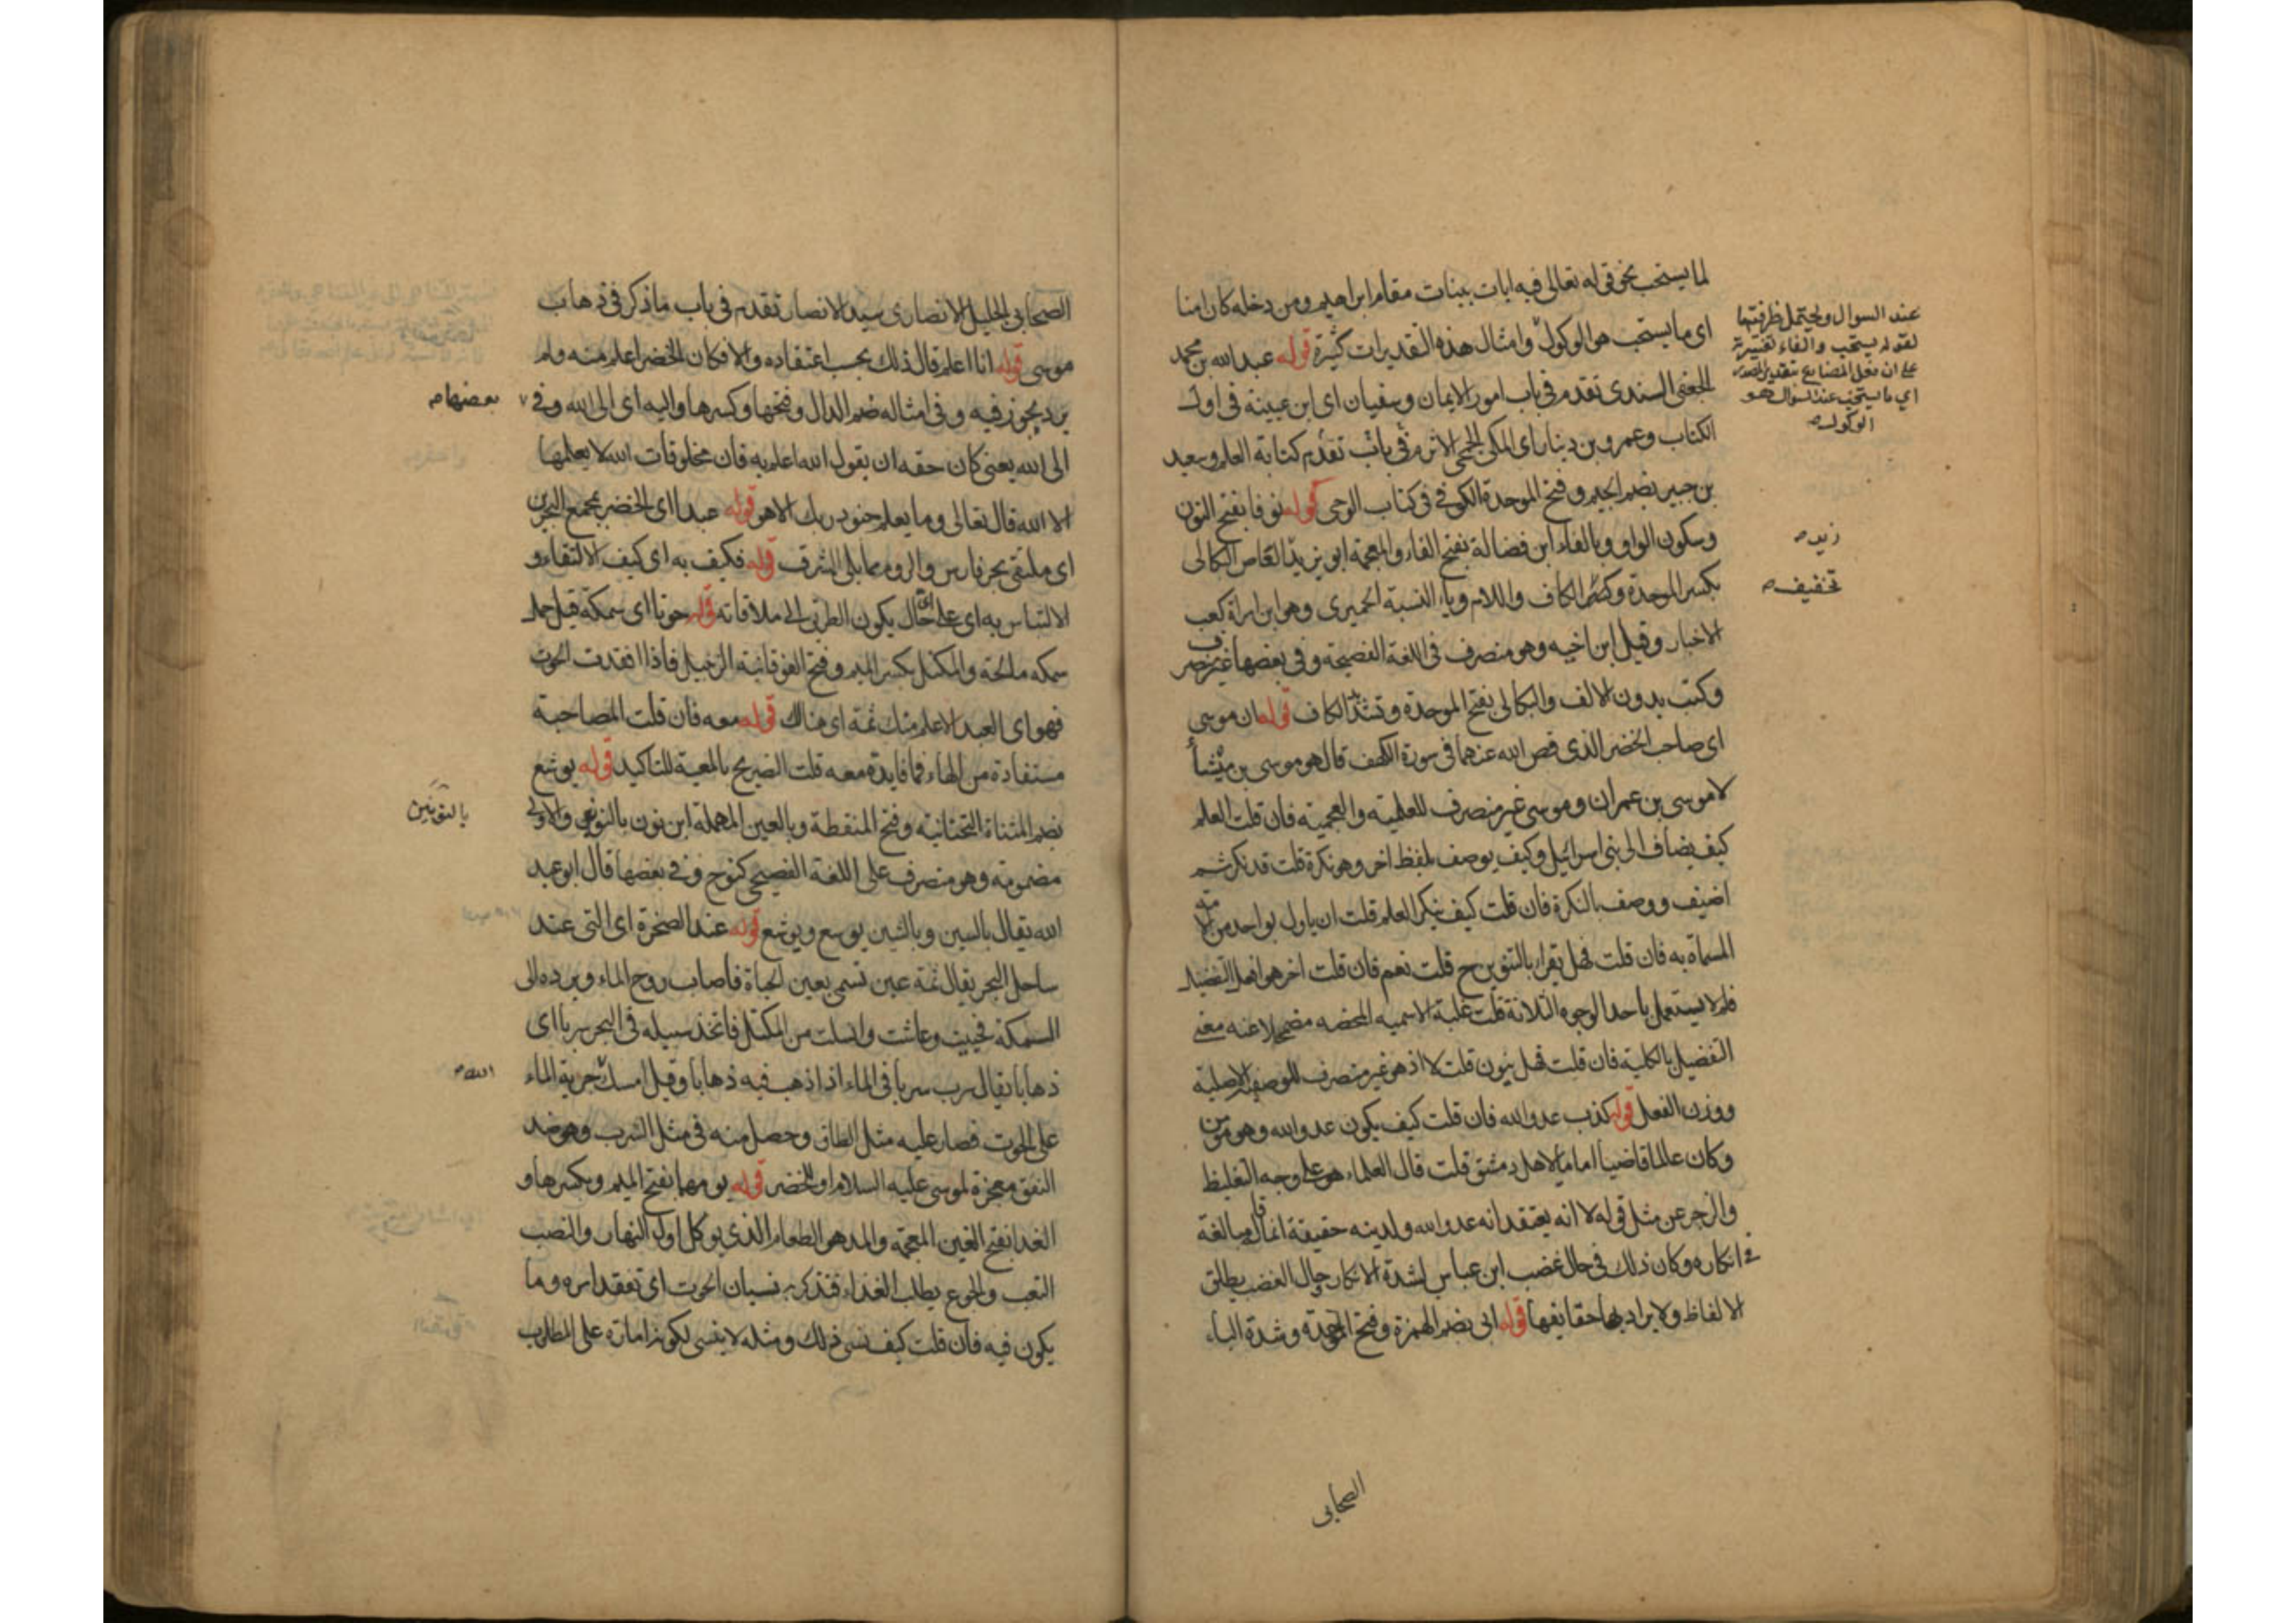 لما يستحب نحو قوله تعالى فيه ايات بينات مقام ابراهيم ومن دخله كان امنا
اى ما يستحب هو الوكول وامثال هذه التقديرات كثيرة قوله عبد الله بن محمد
الجعفى المسندى تقدم فى باب امور الايمان وسفيان اى ابن عيينة فى اول
الكتاب وعمرو بن دينار اى المكى الجمحى الاثرم فى باب تقدم كتابة العلم وسعيد
بن جبير بضم الجيم وفتح الموحدة الكوفى فى كتاب الوحى قوله نوفا بفتح النون
وسكون الواو وبالفاء ابن فضالة بفتح الفاء والمعجمة ابو يزيد القاص البكالى
بكسر الموحدة وكسر الكاف واللام وياء النسبة الحميرى وهو ابن امراة كعب
الاخبار وقيل ابن اخيه وهو منصرف فى اللغة الفصيحة وفى بعضها غير منصرف
وكتب بدون الالف والبكالى بفتح الموحدة وتشديد الكاف قوله ان موسى
اى صاحب الخضر الذى قص الله عنهما فى سورة الكهف قال هو موسى بن ميشا
لا موسى بن عمران وموسى غير منصرف للعلمية والعجمية فان قلت العلم
كيف يضاف الى بنى اسرائيل وكيف يوصف بلفظ اخر وهو نكرة قلت قد نكر ثم
اضيف ووصف بالنكرة فان قلت كيف ينكر العلم قلت ان ياول بواحد من الامة
المسماة به فان قلت فهل يقرا بالتنوين ح قلت نعم فان قلت اخر هو افعل التفضيل
فلم لا يستعمل باحد الوجوه الثلاثة قلت غلبة الاسمية المحضه مضمحلا عنه معنى
التفضيل بالكلية فان قلت فهل ينون قلت لا اذ هو غير منصرف للوصفية الاصلية
ووزن الفعل قوله كذب عدو الله فان قلت كيف يكون عدو الله وهو مؤمن
وكان عالما قاضيا اماما لاهل دمشق قلت قال العلماء هو على وجه التغليظ
والزجر عن مثل قوله لا انه يعتقد انه عدو الله ولدينه حقيقة انما قاله مبالغة
فى انكاره وكان ذلك فى حال غضب ابن عباس لشدة الانكار وحال الغضب يطلق
الالفاظ ولا يراد بها حقايقها قوله ابى بضم الهمزة وفتح الموحدة وشدة الياء
الصحابى
عند السوال ويحتمل ظرفيتها
لقوله يستحب والفاء تفسيرية
على ان فعل المضارع بتقدير المصدر
اي ما يستحب عند السوال هو
الوكول صح
زيد صح
تخفيف صح
الصحابى الجليل الانصارى سيد الانصار تقدم فى باب ما ذكر فى ذهاب
موسى قوله انا اعلم قال ذلك بحسب اعتقاده والا فكان الخضر اعلم منه ولم
يرد يجوز فيه وفى امثاله ضم الدال وفتحها وكسرها واليه اى الى الله وفى
الى الله يعنى كان حقه ان يقول الله اعلم به فان مخلوقات الله لا يعلمها
الا الله قال تعالى وما يعلم جنود ربك الا هو قوله عبدا اى الخضر بمجمع البحرين
اى ملتقى بحر فارس والروم مما يلى الشرق قوله فكيف به اى كيف الالتقاء و
الالتباس به اى على اى حال يكون الطريق الى ملاقاته قوله حوتا اى سمكة قيل حمل
سمكه مالحة والمكتل بكسر الميم وفتح الفوقانية الزنبيل فاذا فقدت الحوت
فهو اى العبد الاعلم منك ثمة اى هناك قوله معه فان قلت المصاحبة
مستفادة من الهاء فما فايدة معه قلت الصريح بالمعية للتاكيد قوله يوشع
بضم المثناة التحتانية وفتح المنقطة وبالعين المهملة ابن نون بالنونين والاولى
مضمومة وهو منصرف على اللغة الفصيحى كنوح وفى بعضها قال ابو عبد
الله يقال بالسين وبالشين يوسع ويوشع قوله عند الصخرة اى التى عند
ساحل البحر يقال ثمة عين تسمى بعين الحياة فاصاب روح الماء وبرده الى
السمكة فحييت وعاشت وانسلت من المكتل فاتخذ سبيله فى البحر سربا اى
ذهابا يقال سرب سربا فى الماء اذا ذهب فيه ذهابا وقيل امسك جرية الماء
على الحوت فصار عليه مثل الطاق وحصل منه فى مثل السرب وهو ضد
النفق معجزة لموسى عليه السلام او للخضر قوله يومهما بفتح الميم وبكسرها و
الغدا بفتح الغين المعجمة والمد هو الطعام الذى يوكل اول النهار والنصب
التعب والجوع يطلب الغذاء فتذكر به نسيان الحوت اى تفقد امره وما
يكون فيه فان قلت كيف نسى ذلك ومثله لا ينسى لكونه امارة على المطلوب
بعضها صح
بالنونين
الله صح